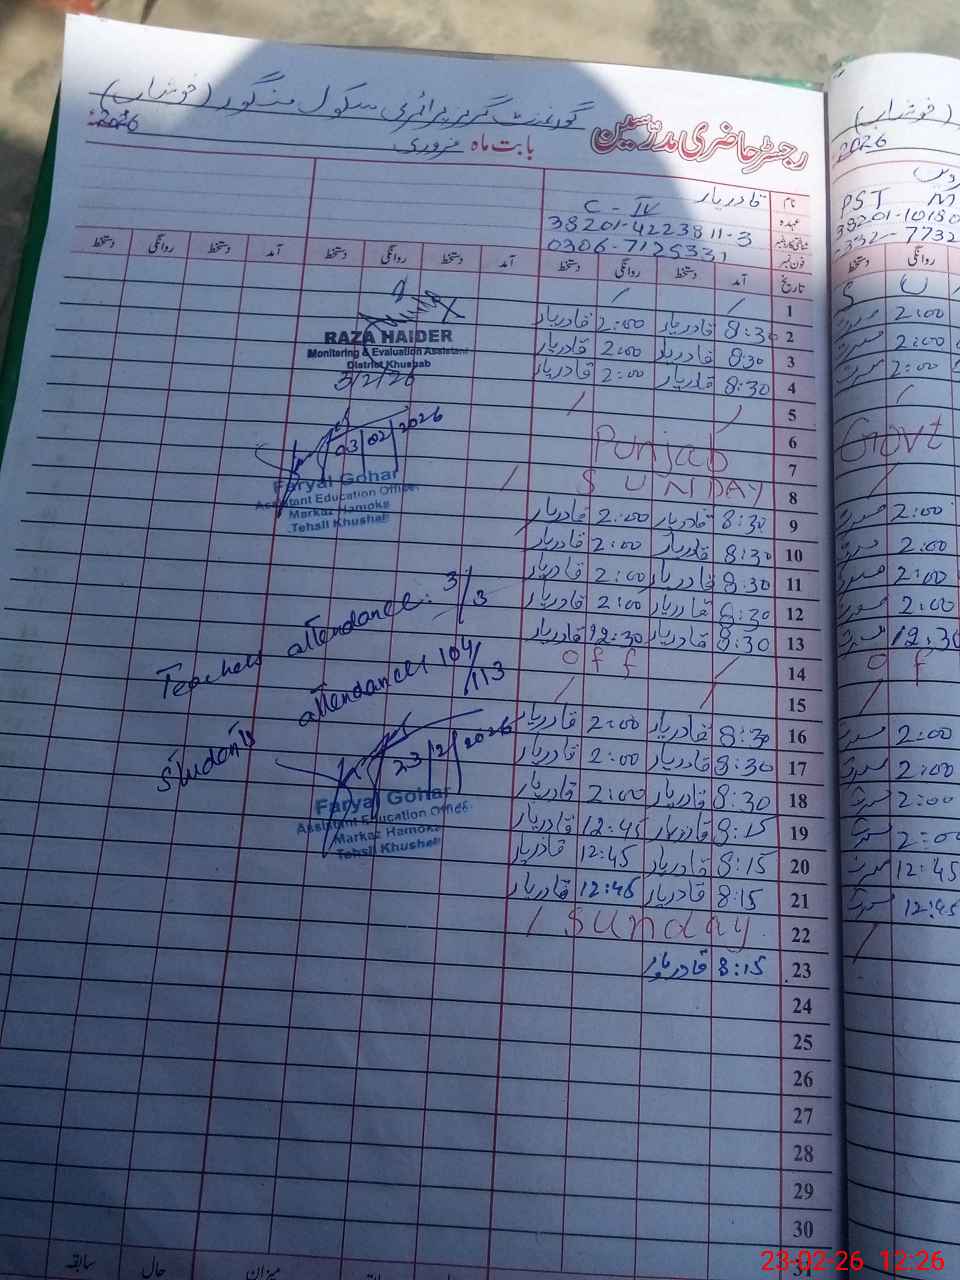 گورنمنٹ گرلز پرائمری سکول منگور (خوشاب)
رجسٹر حاضری مدرسین
بابت ماہ فروری
2026
نام قادریار
عہدہ C - IV
38201-4223811-3
فون نمبر
تاریخ آمد دستخط روانگی دستخط آمد دستخط روانگی دستخط آمد دستخط روانگی دستخط
1
2 8:30 قادریار 2:00 قادریار
3 8:30 قادریار 2:00 قادریار
4 8:30 قادریار 2:00 قادریار
5
6 Punjab
7
8 SUNDAY
9 8:30 قادریار 2:00 قادریار
10 8:30 قادریار 2:00 قادریار
11 8:30 قادریار 2:00 قادریار
12 8:30 قادریار 2:00 قادریار
13 8:30 قادریار 12:30 قادریار
14 off
15
16 8:30 قادریار 2:00 قادریار
17 8:30 قادریار 2:00 قادریار
18 8:30 قادریار 2:00 قادریار
19 8:15 قادریار 12:45 قادریار
20 8:15 قادریار 12:45 قادریار
21 8:15 قادریار 12:45 قادریار
22 Sunday
23 8:15 قادریار
24
25
26
27
28
29
30
31
RAZA HAIDER
Monitoring & Evaluation Assistant
District Khushab
3/2/26
03/02/2026
Faryal Gohar
Assistant Education Officer
Markaz Hamoka
Tehsil Khushab
Teachers attendance: 3/3
Students attendance: 104/113
23/2/2026
Faryal Gohar
Assistant Education Officer
Markaz Hamoka
Tehsil Khushab
میزان حال سابقہ
(خوشاب)
2026
PST
روانگی دستخط
2:00
2:00
2:00
Govt
2:00
2:00
2:00
2:00
12:30
of
2:00
2:00
2:00
2:00
12:45
12:45
23-02-26 12:26